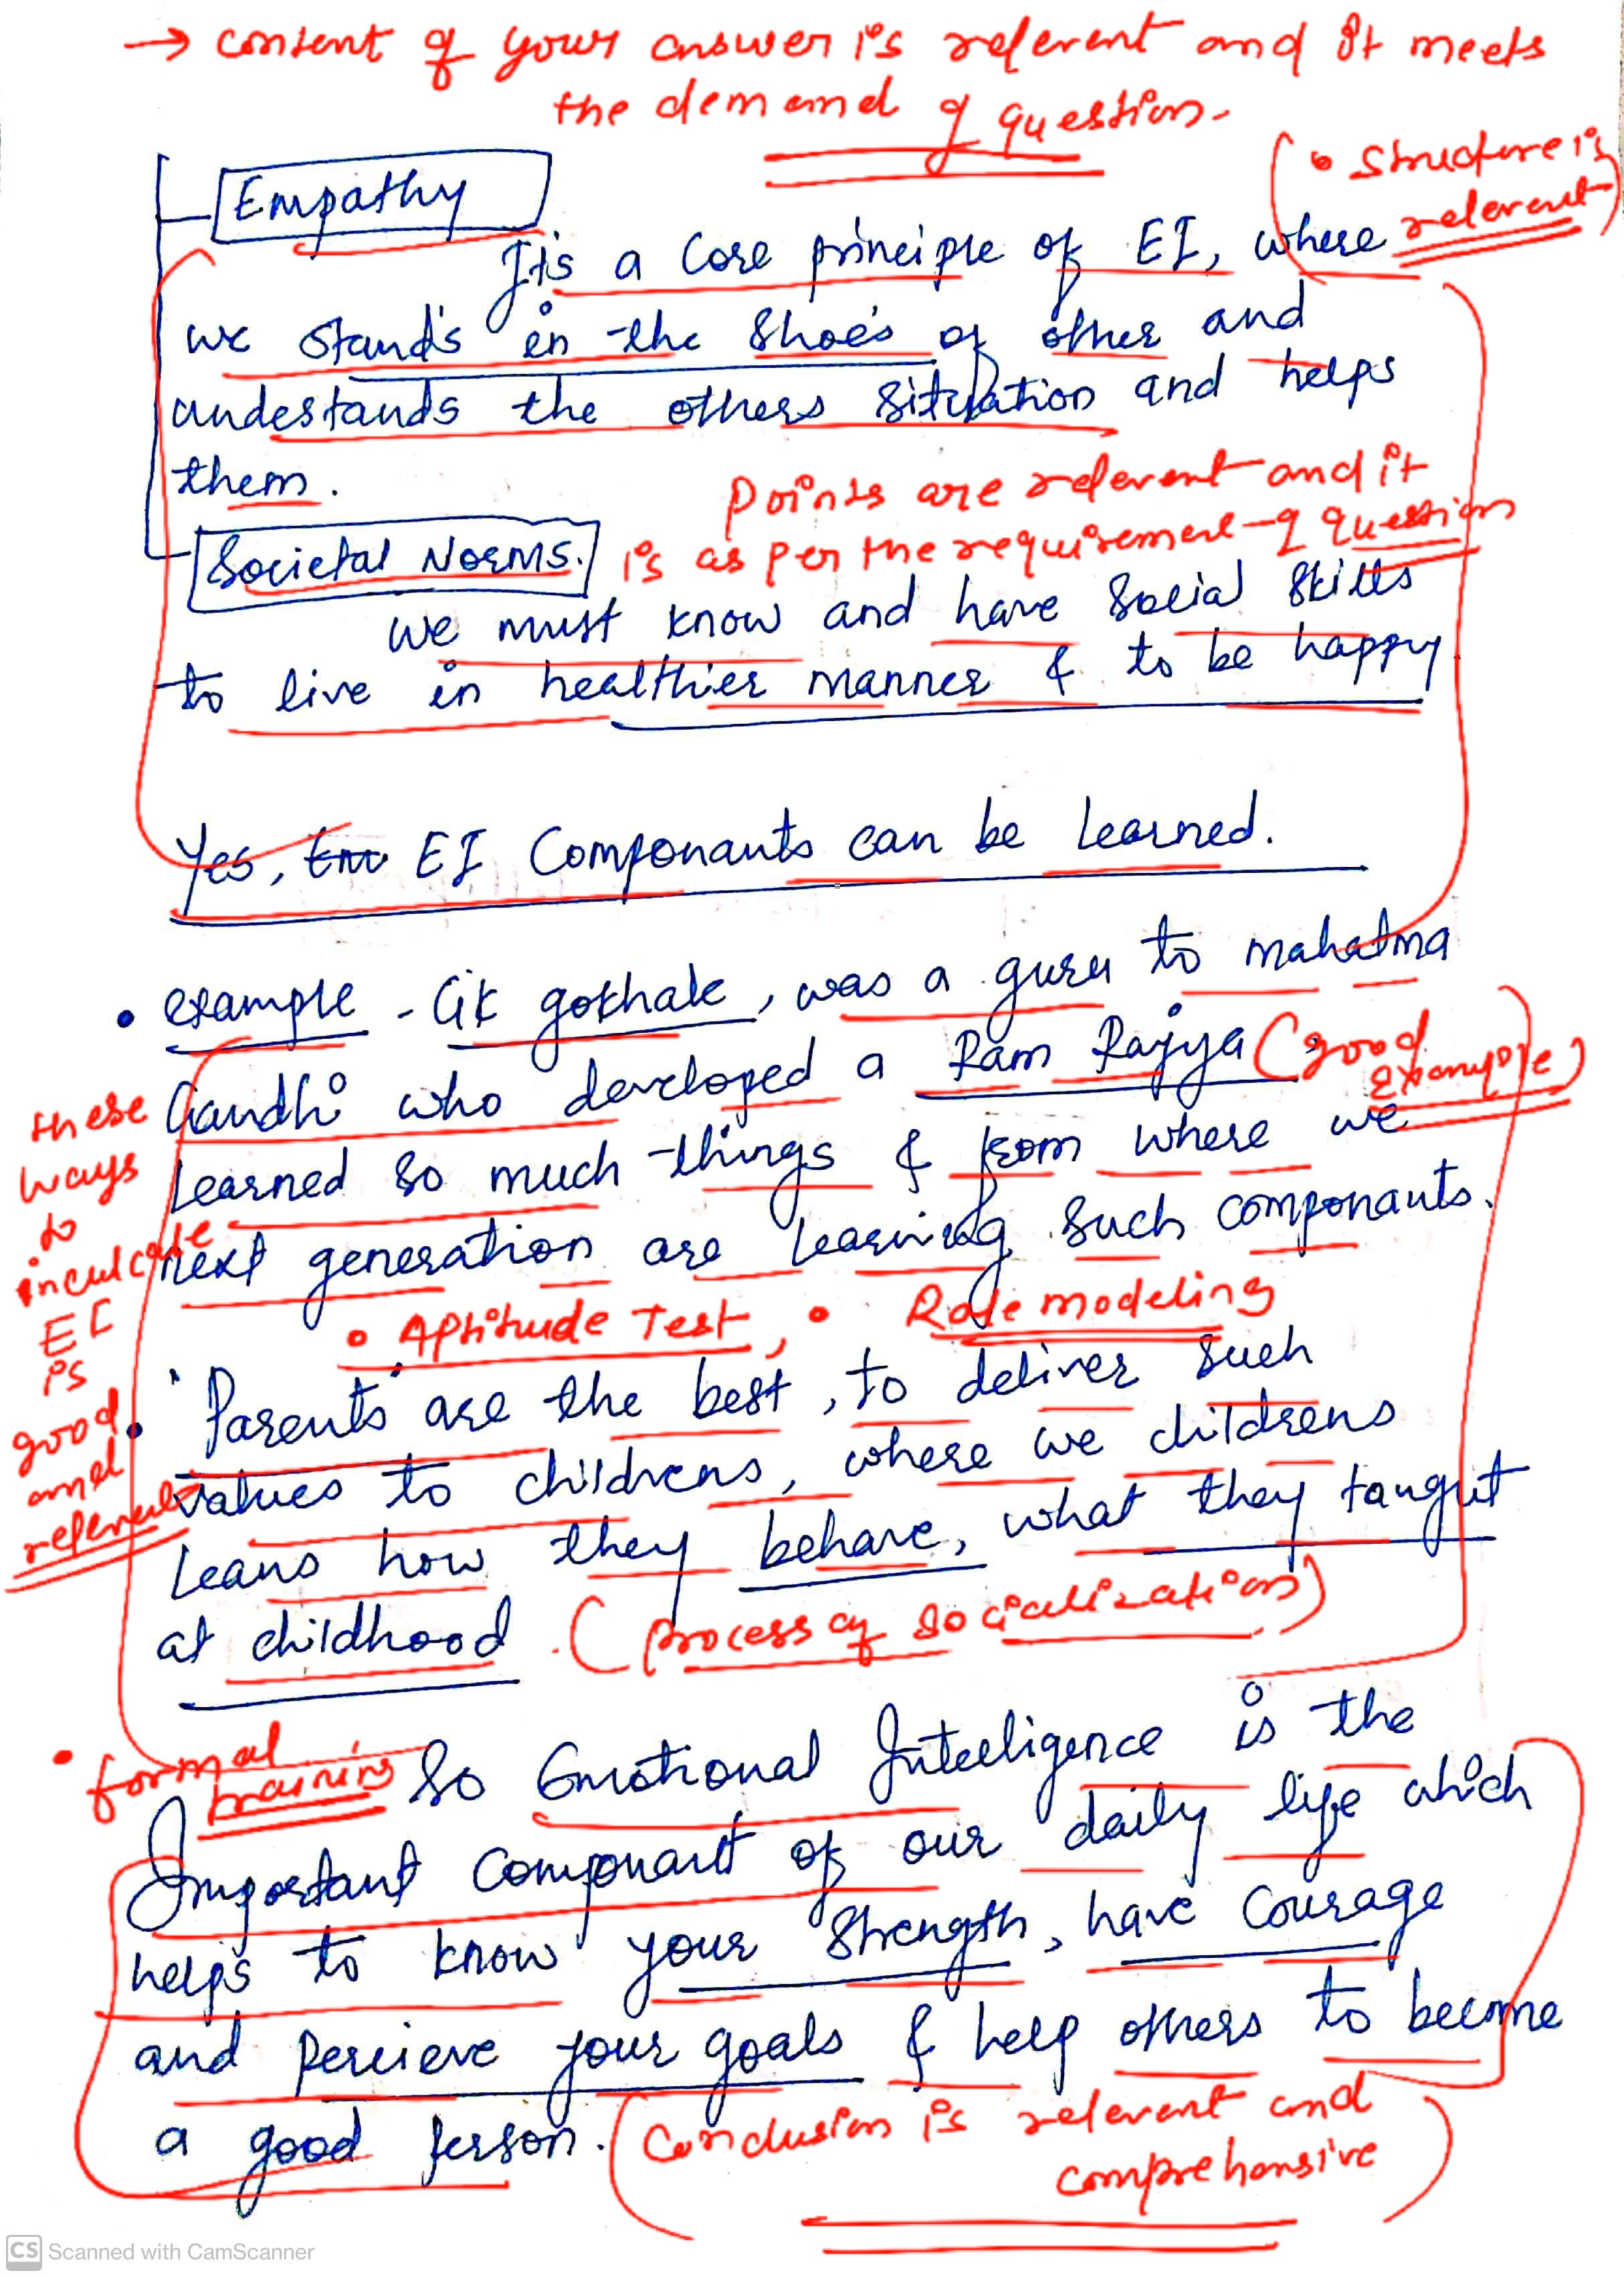 → content of your answer is relevent and it meets
the demand of question.
• Structure is
relevent
Empathy
Itis a Core principle of EI, where
we stands in the Shoes of other and
undestands the others situation and helps
them.
Points are relevent and it
is as per the requirement of question
Societal Norms.
we must know and have Social Skills
to live in healthier manner & to be happy
Yes, EI Componants can be learned.
• example - GK gokhale, was a guru to mahatma
Gandhi who developed a Ram Rajya (good
example)
learned so much things & from where we
next generation are learning such componants.
these
ways
to
inculcate
EI
is
good
and
relevent
• Aptitude Test, • Role modeling
• "Parents" are the best, to deliver such
values to childrens, where we childrens
leans how they behave, what they taught
at childhood. (process of socialization)
• formal
training
So Emotional Intelligence is the
Important Componant of our daily life which
helps to know your Strength, have Courage
and percieve your goals & help others to become
a good person.
(Conclusion is relevent and
comprehensive)
CS Scanned with CamScanner